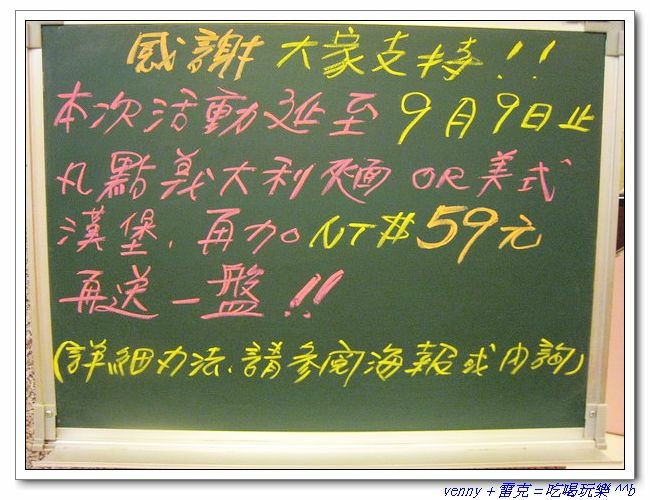 感謝 大家支持!!
本次活動延至 9月9日止
丸點義大利麵 OR 美式
漢堡,再加 NT$ 59元
再送一盤!!
(詳細办法、請參閱海報或內詢)
venny + 雷克 = 吃喝玩樂 ^^b